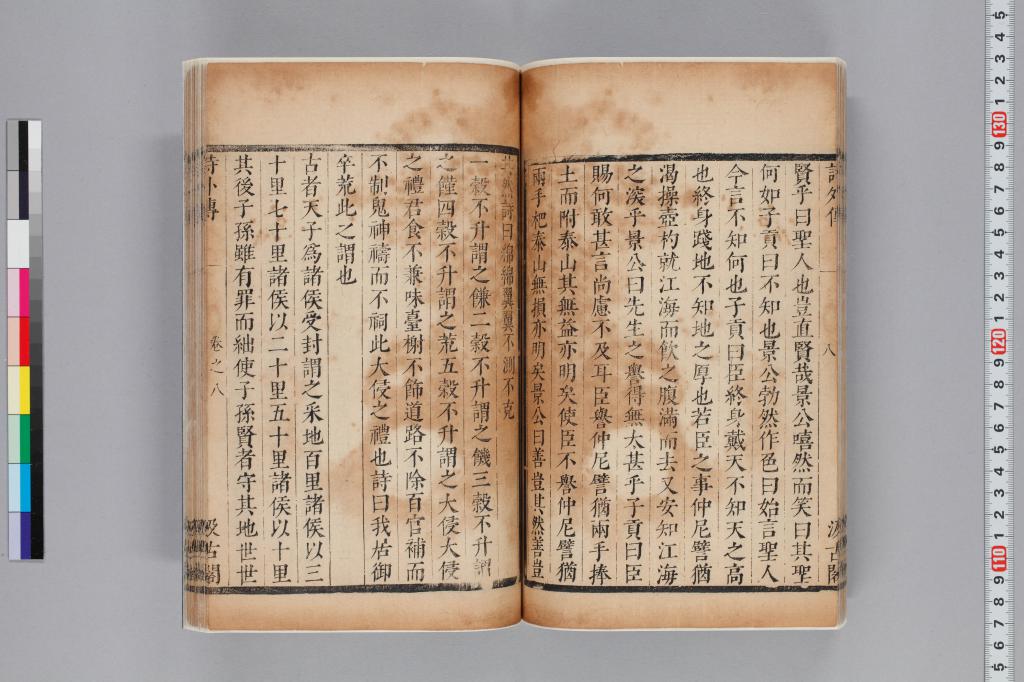 詩外傳
八
汲古閣
賢乎曰聖人也豈直賢哉景公嘻然而笑曰其聖
何如子貢曰不知也景公勃然作色曰始言聖人
今言不知何也子貢曰臣終身戴天不知天之高
也終身踐地不知地之厚也若臣之事仲尼譬猶
渴操壺杓就江海而飲之腹滿而去又安知江海
之深乎景公曰先生之譽得無太甚乎子貢曰臣
賜何敢甚言尚慮不及耳臣譽仲尼譬猶兩手捧
土而附泰山其無益亦明矣使臣不譽仲尼譬猶
兩手杷泰山無損亦明矣景公曰善豈其然善豈
其然詩曰綿綿翼翼不測不克
一穀不升謂之鎌二穀不升謂之饑三穀不升謂
之饉四穀不升謂之荒五穀不升謂之大侵大侵
之禮君食不兼味臺榭不飾道路不除百官補而
不制鬼神禱而不祠此大侵之禮也詩曰我居御
卒荒此之謂也
古者天子爲諸侯受封謂之采地百里諸侯以三
十里七十里諸侯以二十里五十里諸侯以十里
其後子孫雖有罪而絀使子孫賢者守其地世世
詩外傳
卷之八
汲古閣